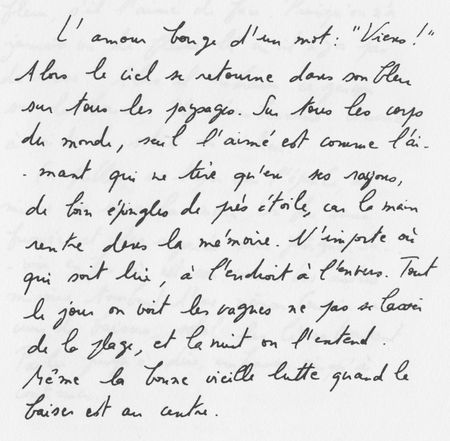 L'amour bouge d'un mot : "Viens !"
Alors le ciel se retourne dans son bleu
sur tous les paysages. Sur tous les corps
du monde, seul l'aimé est comme l'ai-
- mant qui ne tire qu'en ses rayons,
de loin épingles de près étoile, car la main
rentre dans la mémoire. N'importe où
qui soit lui, à l'endroit à l'envers. Tout
le jour on voit les vagues ne pas se lasser
de la plage, et la nuit on l'entend.
Même la bonne vieille lutte quand le
baiser est au centre.